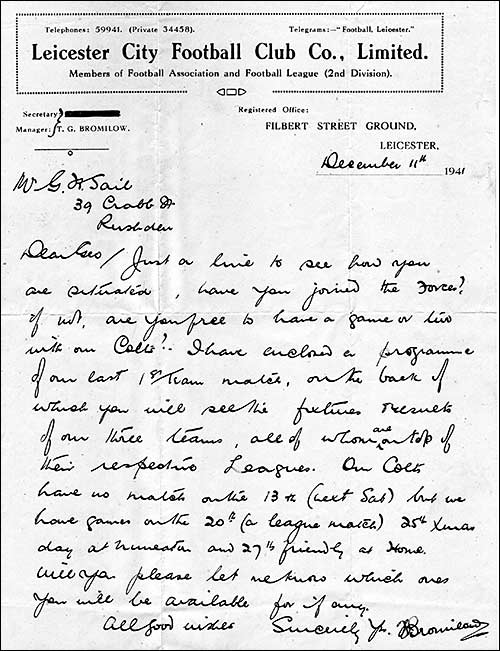 Telephones: 59941. (Private 34458). Telegrams:—"Football, Leicester."
Leicester City Football Club Co., Limited.
Members of Football Association and Football League (2nd Division).
Secretary
Manager: T. G. BROMILOW.
Registered Office:
FILBERT STREET GROUND,
LEICESTER.
December 11th 1941
Mr G. H. Sail
39 Crabb St
Rushden
Dear Geo/ Just a line to see how you
are situated, have you joined the Forces?
if not, are you free to have a game or two
with our Colts? I have enclosed a programme
of our last 1st Team match, on the back of
which you will see the fixtures & results
of our three teams, all of whom are on top of
their respective Leagues. Our Colts
have no match on the 13th (next Sat) but we
have games on the 20th (a league match) 25th Xmas
day at Nuneaton and 27th friendly at Home.
Will you please let me know which ones
you will be available for if any.
All good wishes Sincerely Yrs T Bromilow